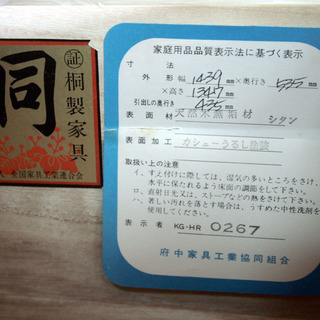 証
桐製家具
同
人 全国家具工業連合会
家庭用品品質表示法に基づく表示
寸法
外形 幅 1439 mm × 奥行き 535 mm
× 高さ 1347 mm
引出しの奥行き 435 mm
表面材 天然木無垢材 シタン
表面加工 カシューうるし塗装
取扱い上の注意
イ、すえ付けに際しては、湿気の多いところをさけ、
水平に保たれるよう床面の調節をして下さい。
ロ、直射日光又は、ストーブなどの熱をさけて下さい。
ハ、著しい汚れを落とす場合は、うすめた中性洗剤を
使用して下さい。
表示者 KG-HR 0267
府中家具工業協同組合